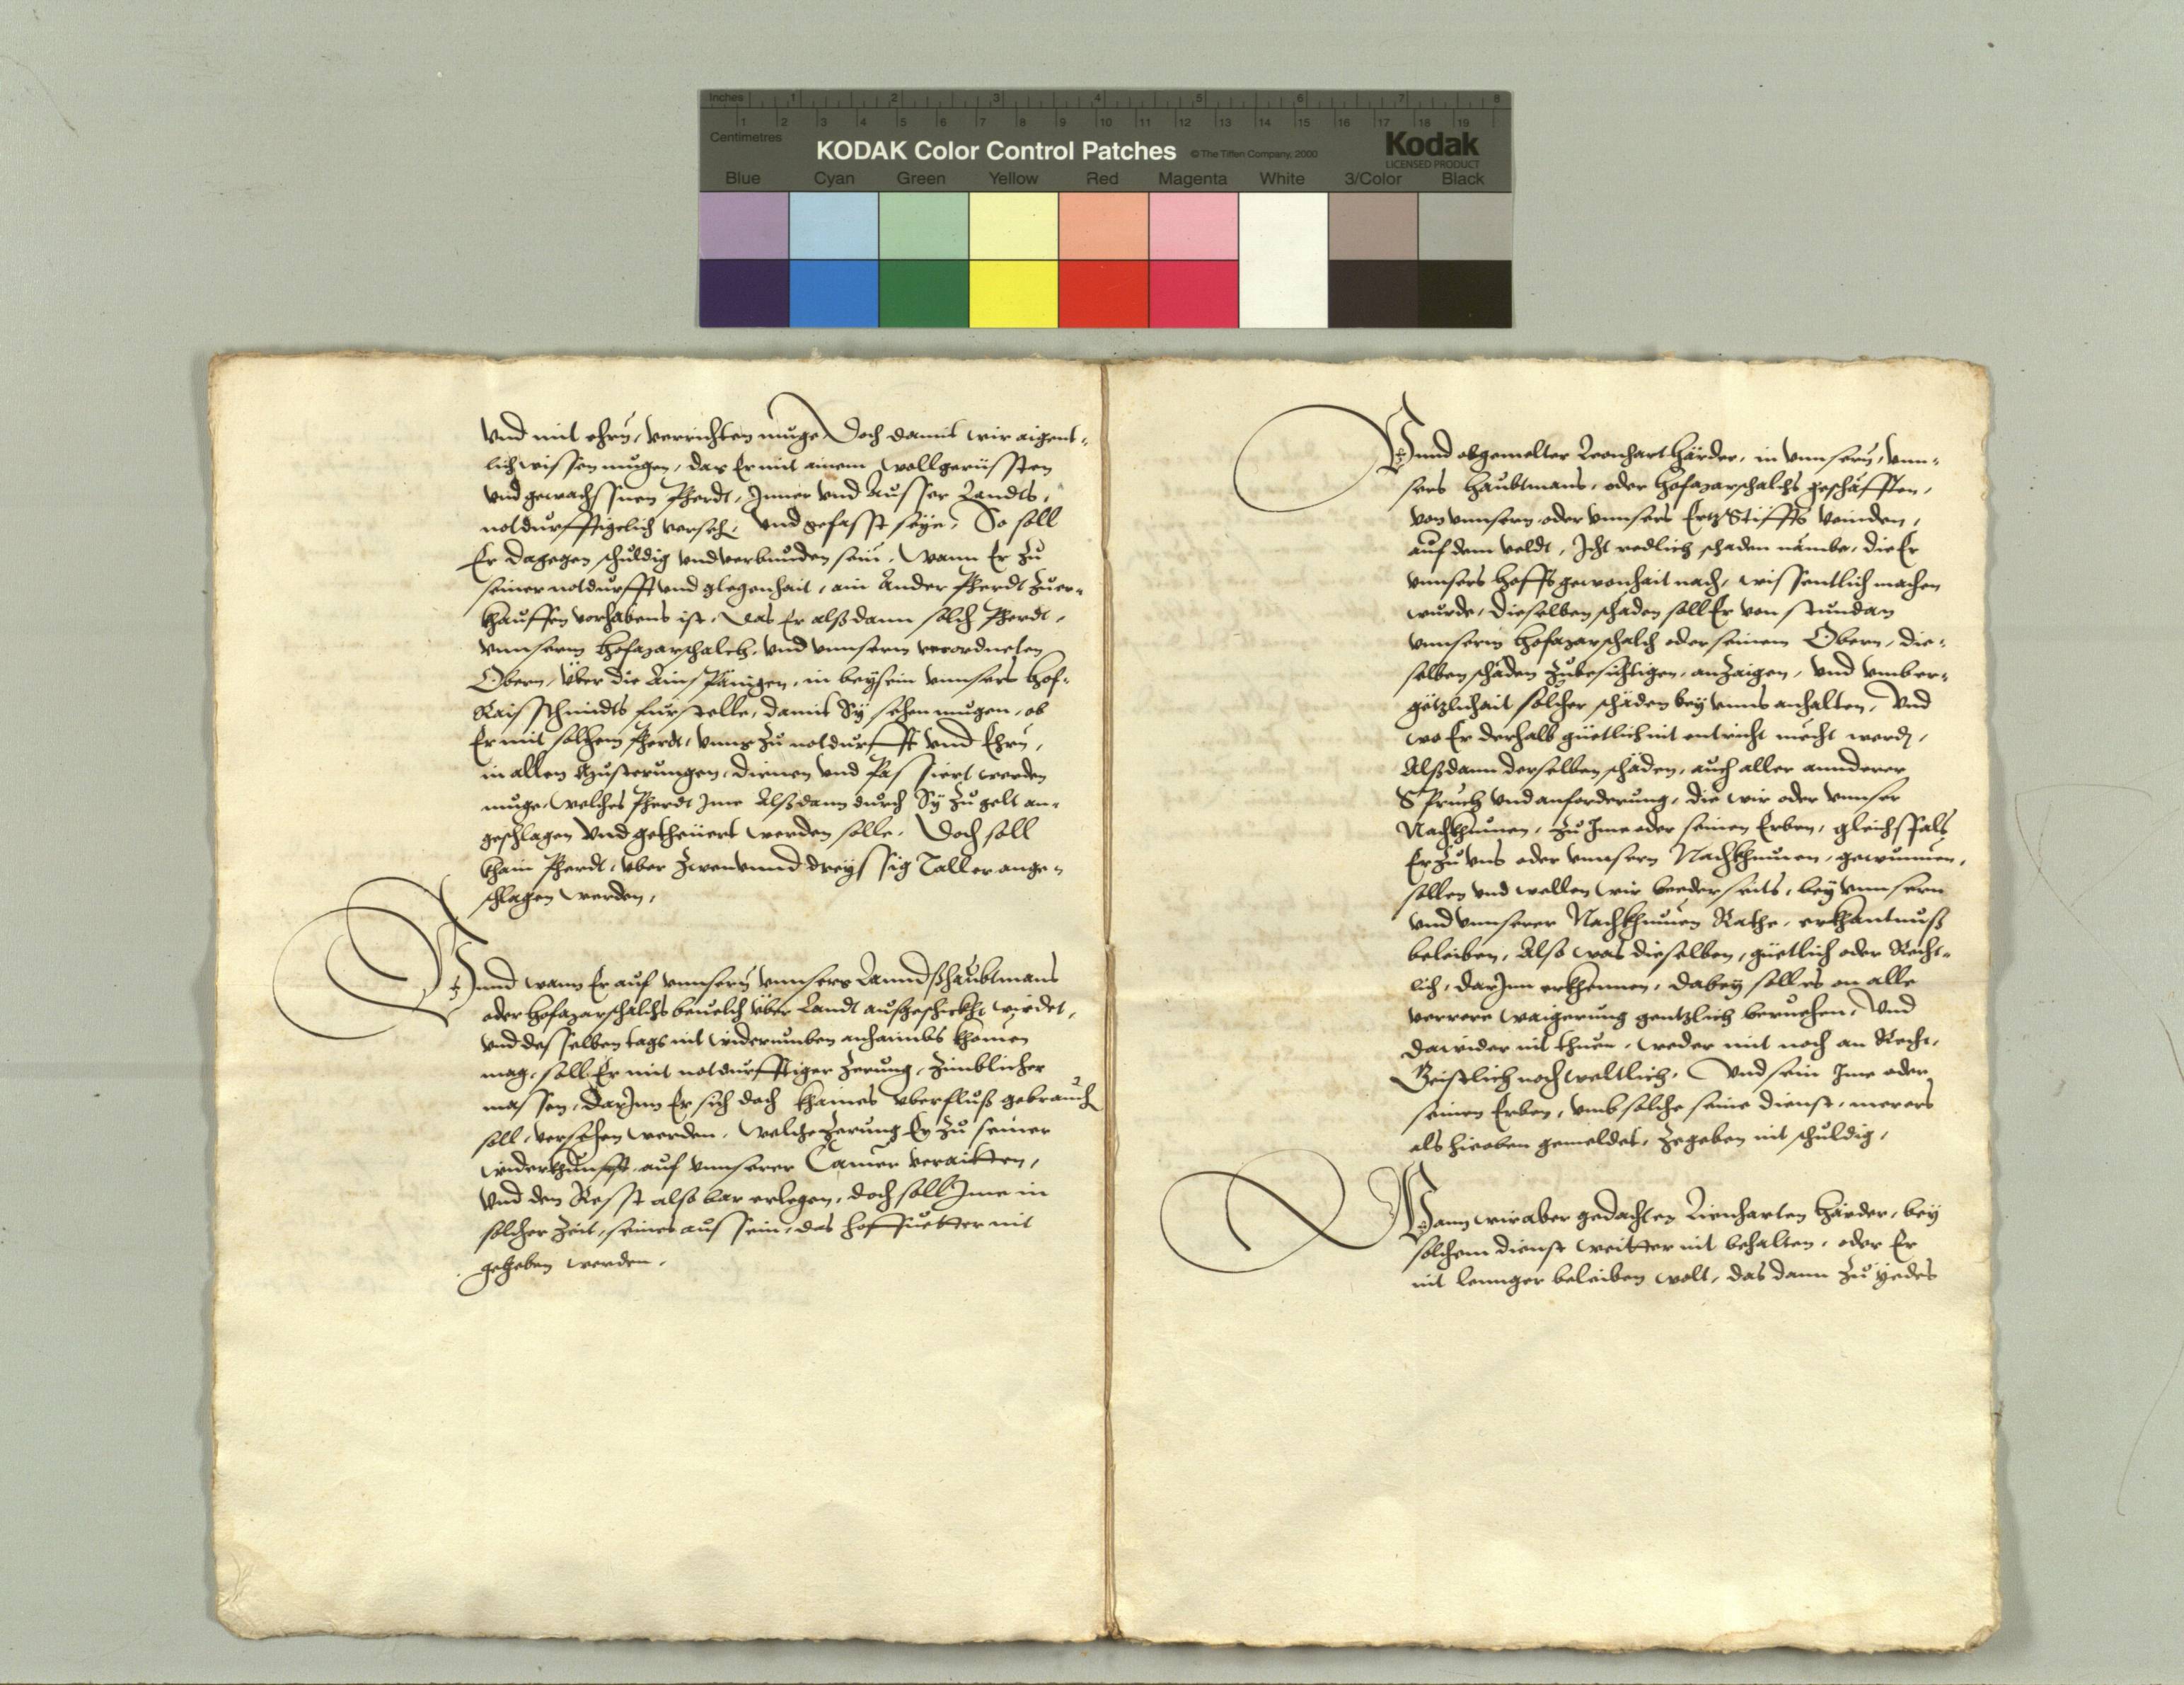 Inches 1 2 3 4 5 6 7 8
1 2 3 4 5 6 7 8 9 10 11 12 13 14 15 16 17 18 19
Centimetres
KODAK Color Control Patches ©The Tiffen Company, 2000 Kodak
LICENSED PRODUCT
Blue Cyan Green Yellow Red Magenta White 3/Color Black
Vnd mit ehrn, verrichten muge, Doch damit wir aigent-
lich wissen mugen, das Er mit ainem wollgerüssten
vnd gewachssnen Pherdt, Inner vnd Ausser Landts,
notdurfftigelich verseh. vnd gefasst seÿe, So soll
Er dagegen schuldig vnd verbunden sein, Wann Er zu
seiner notdurfft vnd glegenhait, ain Ander Pherdt zuer-
khauffen vorhabens ist, Das Er alßdann solch Pherdt,
vnnserm Hofmarschalch, vnd vnnserm verordneten
Obern, Über die Ainspänigen, in beÿsein vnnsers Hof-
Raisschmidts furstelle, damit Sÿ sehen mugen, ob
Er mit solhem Pherdt, vnns zu notdurfft vnd Ehrn,
in allen Musterungen, dienen vnd Passiert werden
muge, Welches Pherdt Ime Alßdann durch Sÿ zu gelt an-
geschlagen vnd getheüert werden solle, Doch soll
khain Pherdt, vber zwenvnnd dreÿssig Taller ange-
schlagen werden,
Vnnd wann Er auf vnnsern vnnsers Lanndßhaubtmans
oder Hofmarschalchs beuelch über Landt außgeschickht wirdet,
vnd desselben tags nit widerumben anhaimbs khomen
mag, soll Er mit notdurfftiger Zerung, Zimblicher
massen, darInn Er sich doch khaines vberfluß gebrauch
soll, versehen werden, Welche Zerung Er zu seiner
widerkhunfft auf vnnserer Camer verraitten,
vnd den Resst also bar erlegen, doch soll Ime in
solcher Zeit, seines aussein, das hoffuetter nit
gegeben werden.
Vnnd obgemelter Leonhart Härder, in vnnsern, vnn-
sers Haubtmans, oder Hofmarschalchs geschäfften,
von vnnsern oder vnnsers Ertz Stiffts veinden,
auf dem veldt, Icht redlich schaden nämbe, die Er
vnnsers Hoffs gewonhait nach, wissentlich machen
wurde, dieselben schäden soll Er von stundan
vnnserm Hofmarschalch oder seinem Obern, die-
selben schäden zubesichtigen, anzaigen, vnd vmb er-
götzlichait solcher schäden beÿ vnns anhalten, Vnd
wo Er derhalb güetlich nit entricht mecht werd,
Alßdann derselben schäden, auch aller annderer
Spruch vnd anforderung, die wir oder vnnser
Nachkhumen, zu Ime oder seinen Erben, gleichsfals
Er zu vns oder vnnsern Nachkhumen, gewunnen,
sollen vnd wellen wir beederseits, beÿ vnnsern
vnd vnnserer Nachkhumen Räthe, erkhantnuß
beleiben, Also was dieselben, güetlich oder Recht-
lich, darInn erkhennen, dabeÿ soll es on alle
verrere waigerung gentzlich beruehen, Vnd
dawider nit thuen, weder mit noch an Recht,
Geistlich noch weltlich, Vnd sein Ime oder
seinen Erben, vmb solche seine dienst, merers
als hieoben gemeldet, zegeben nit schuldig,
Wann wir aber gedachten Lienharten Härder, beÿ
solchem dienst weitter nit behalten, oder Er
nit lennger beleiben wolt, das dann zu ÿedes